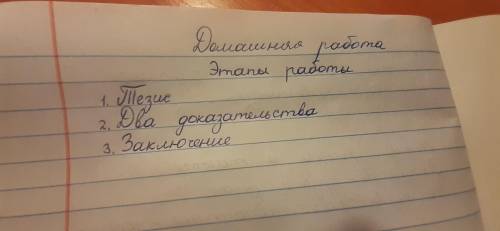 Домашняя работа
Этапы работы
1. Тезис
2. Два доказательства
3. Заключение